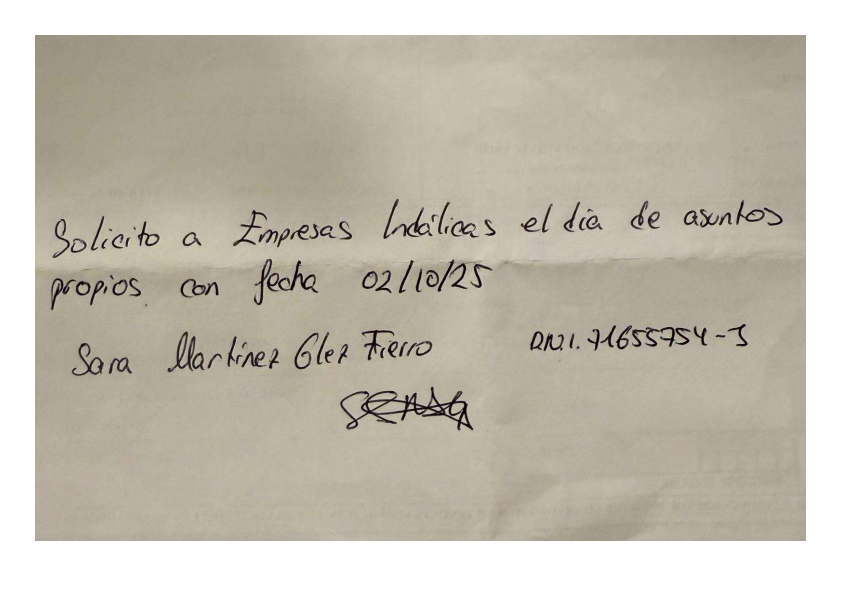 Solicito a Empresas Indálicas el día de asuntos
propios con fecha 02/10/25
Sara Martínez Glez Fierro D.N.I. 71655754-J